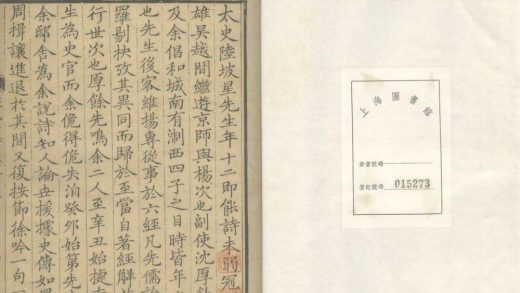 太史陸坡星先生年十二即能詩未弱冠
雄吳越間繼遊京師與楊次也副使沈厚餘
及余倡和城南有制西四子之目時皆年
也先生後客維揚專從事於六經凡先儒
羅剔抉攷其異同而歸於至當自著經解
行世次也厚餘先鳴余二人至辛丑始捷
生為史官而余俛得俛失洎癸夘始第先
余邸舍為余説詩知人論世援據史傳如
周揖讓進退於其間又復按節徐吟一句
上海圖書館
索書號碼
登記號碼 015273